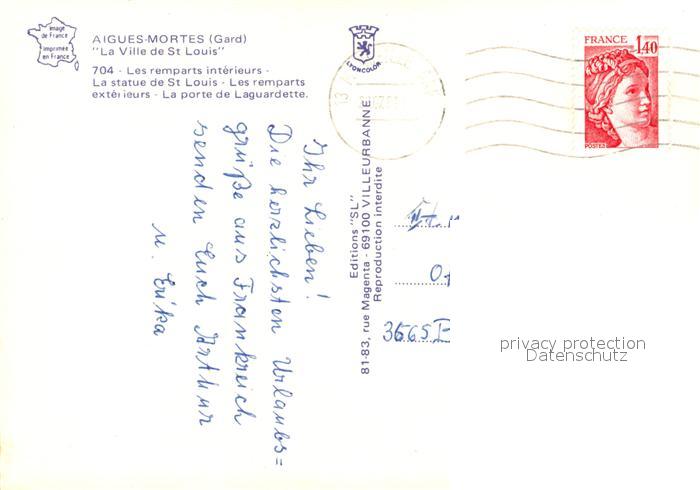 image
de France
imprimée
en France
AIGUES-MORTES (Gard)
"La Ville de St Louis"
704 - Les remparts intérieurs -
La statue de St Louis - Les remparts
extérieurs - La porte de Laguardette.
LYONCOLOR
FRANCE 1,40
POSTES
Ihr Lieben!
Die herzlichsten Urlaubs=
grüße aus Frankreich
senden Euch Arthur
u. Erika
Editions "SL"
81-83, rue Magenta - 69100 VILLEURBANNE
Reproduction interdite
privacy protection
Datenschutz